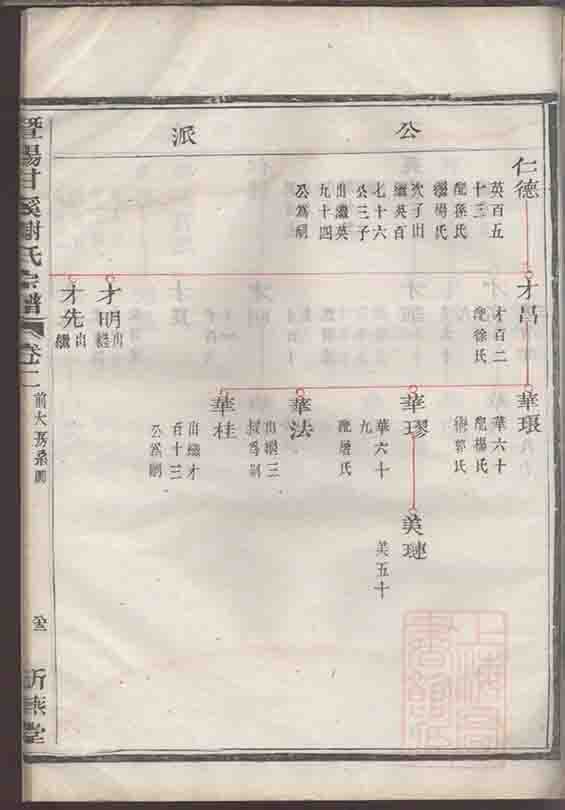 公
派
仁德
英百五
十三
配孫氏
繼楊氏
次子田
繼英百
七十六
公三子
出繼英
九十四
公為嗣
才昌
才百二
配徐氏
才明
出繼
才先
出繼
華琅
華六十
配楊氏
繼郭氏
華璆
華六十
九
配屠氏
華法
出繼三
叔為嗣
華桂
出繼才
百十三
公為嗣
美璉
美五十
暨陽甘溪謝氏宗譜
卷二
上海圖
書館藏